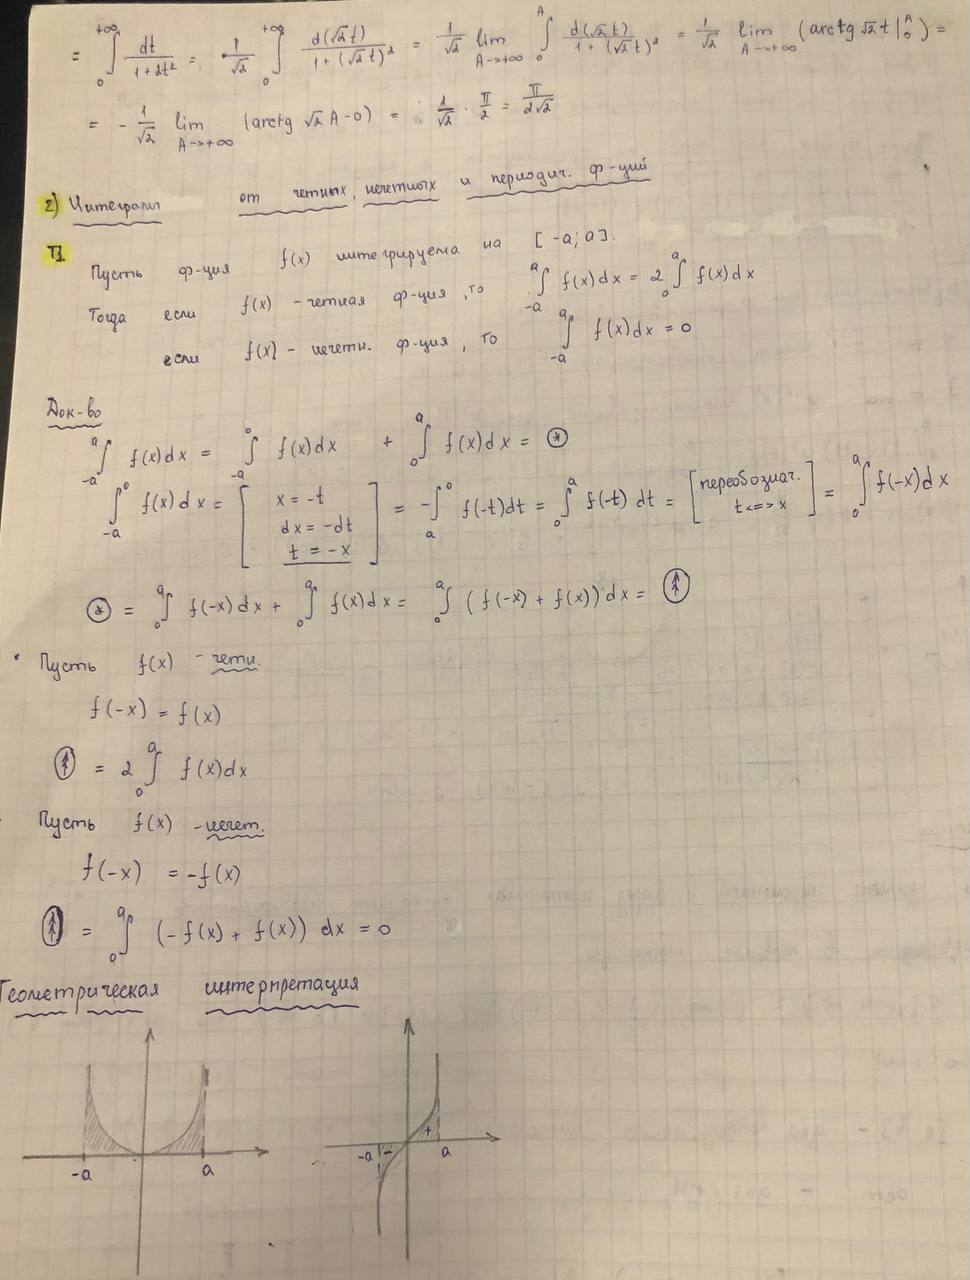 = ∫₀^{+∞} dt/(1+2t²) = 1/√2 ∫₀^{+∞} d(√2t)/(1+(√2t)²) = 1/√2 lim_{A→+∞} ∫₀^A d(√2t)/(1+(√2t)²) = 1/√2 lim_{A→+∞} (arctg √2t|₀^A) =
= - 1/√2 lim_{A→+∞} (arctg √2 A - 0) = 1/√2 · π/2 = π/(2√2)
2) Интегралы от четных, нечетных и периодич. ф-ций
T1 Пусть ф-ция f(x) интегрируема на [-a; a].
Тогда если f(x) - четная ф-ция, то ∫_{-a}^a f(x)dx = 2∫₀^a f(x)dx
если f(x) - нечетн. ф-ция, то ∫_{-a}^a f(x)dx = 0
Док-во
∫_{-a}^a f(x)dx = ∫_{-a}^0 f(x)dx + ∫₀^a f(x)dx = (*)
∫_{-a}^0 f(x)dx = [x = -t dx = -dt t = -x] = -∫_a^0 f(-t)dt = ∫₀^a f(-t)dt = [переобознач. t<=>x] = ∫₀^a f(-x)dx
(*) = ∫₀^a f(-x)dx + ∫₀^a f(x)dx = ∫₀^a (f(-x) + f(x))dx = (↑)
• Пусть f(x) - четн.
f(-x) = f(x)
(↑) = 2 ∫₀^a f(x)dx
• Пусть f(x) - нечет.
f(-x) = -f(x)
(↑) = ∫₀^a (-f(x) + f(x)) dx = 0
Геометрическая интерпретация
-a a -a - + a